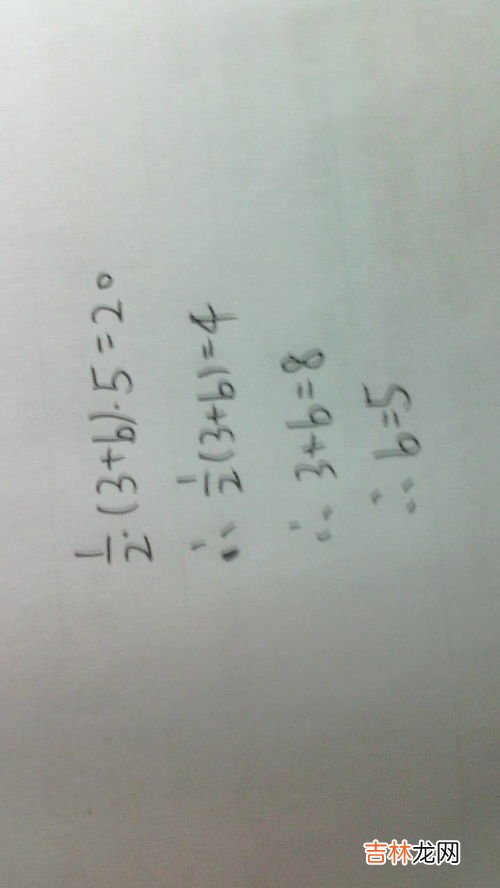 1/2·(3+b)·5=20
∴ 1/2(3+b)=4
∴ 3+b=8
∴ b=5
吉林龙网